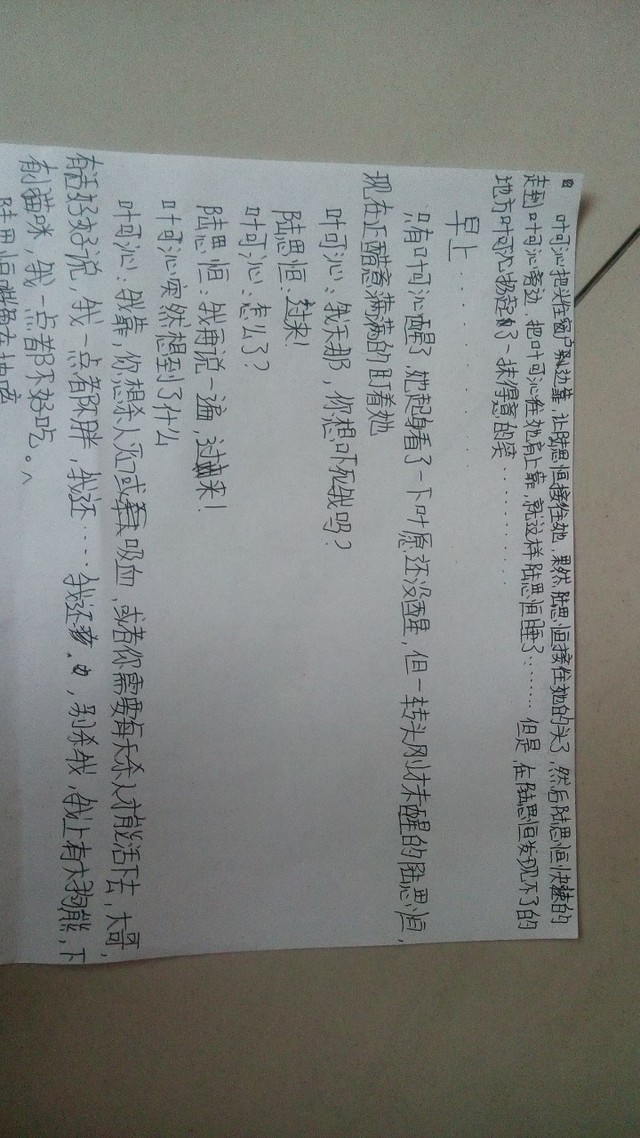 叶可沁把头往窗户那边靠，让陆思恒接住她，果然陆思恒接住她的头了，然后陆思恒快速的
走到叶可沁旁边，把叶可沁往她肩上靠，就这样陆思恒睡了……但是，在陆思恒发现不了的
地方叶可沁扬起了一抹得意的笑…………
早上…………
只有叶可沁醒了，她起身看了一下叶愿还没醒，但一转头刚才未醒的陆思恒，
现在正醋意满满的盯着她
叶可沁：我天那，你想吓死我吗？
陆思恒：过来！
叶可沁：怎么了？
陆思恒：我再说一遍，过来！
叶可沁突然想到了什么
叶可沁：我靠，你想杀人灭口或吸血，或者你需要每天杀人才能活下去，大哥，
有话好好说，我一点都不胖，我还……我还瘦，别杀我，我上有大狗熊，下
有小猫咪，我一点都不好吃。
陆思恒嘴角在抽